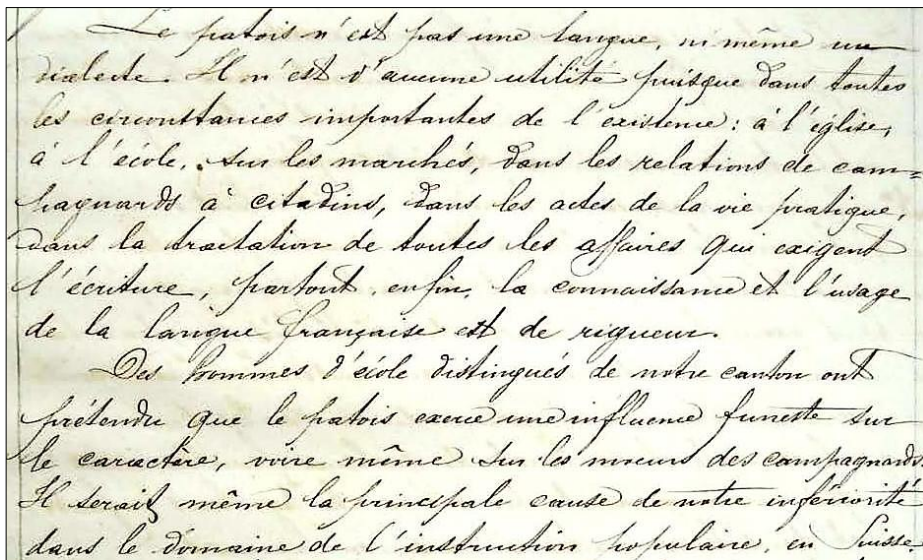 Le patois n'est pas une langue, ni même un
dialecte. Il n'est d'aucune utilité puisque dans toutes
les circonstances importantes de l'existence : à l'église,
à l'école, sur les marchés, dans les relations de cam=
pagnards à citadins, dans les actes de la vie pratique,
dans la tractation de toutes les affaires qui exigent
l'écriture, partout, enfin, la connaissance et l'usage
de la langue française est de rigueur.
Des hommes d'école distingués de notre canton ont
prétendu que le patois exerce une influence funeste sur
le caractère, voire même sur les mœurs des campagnards.
Il serait même la principale cause de notre infériorité
dans le domaine de l'instruction populaire en Suisse